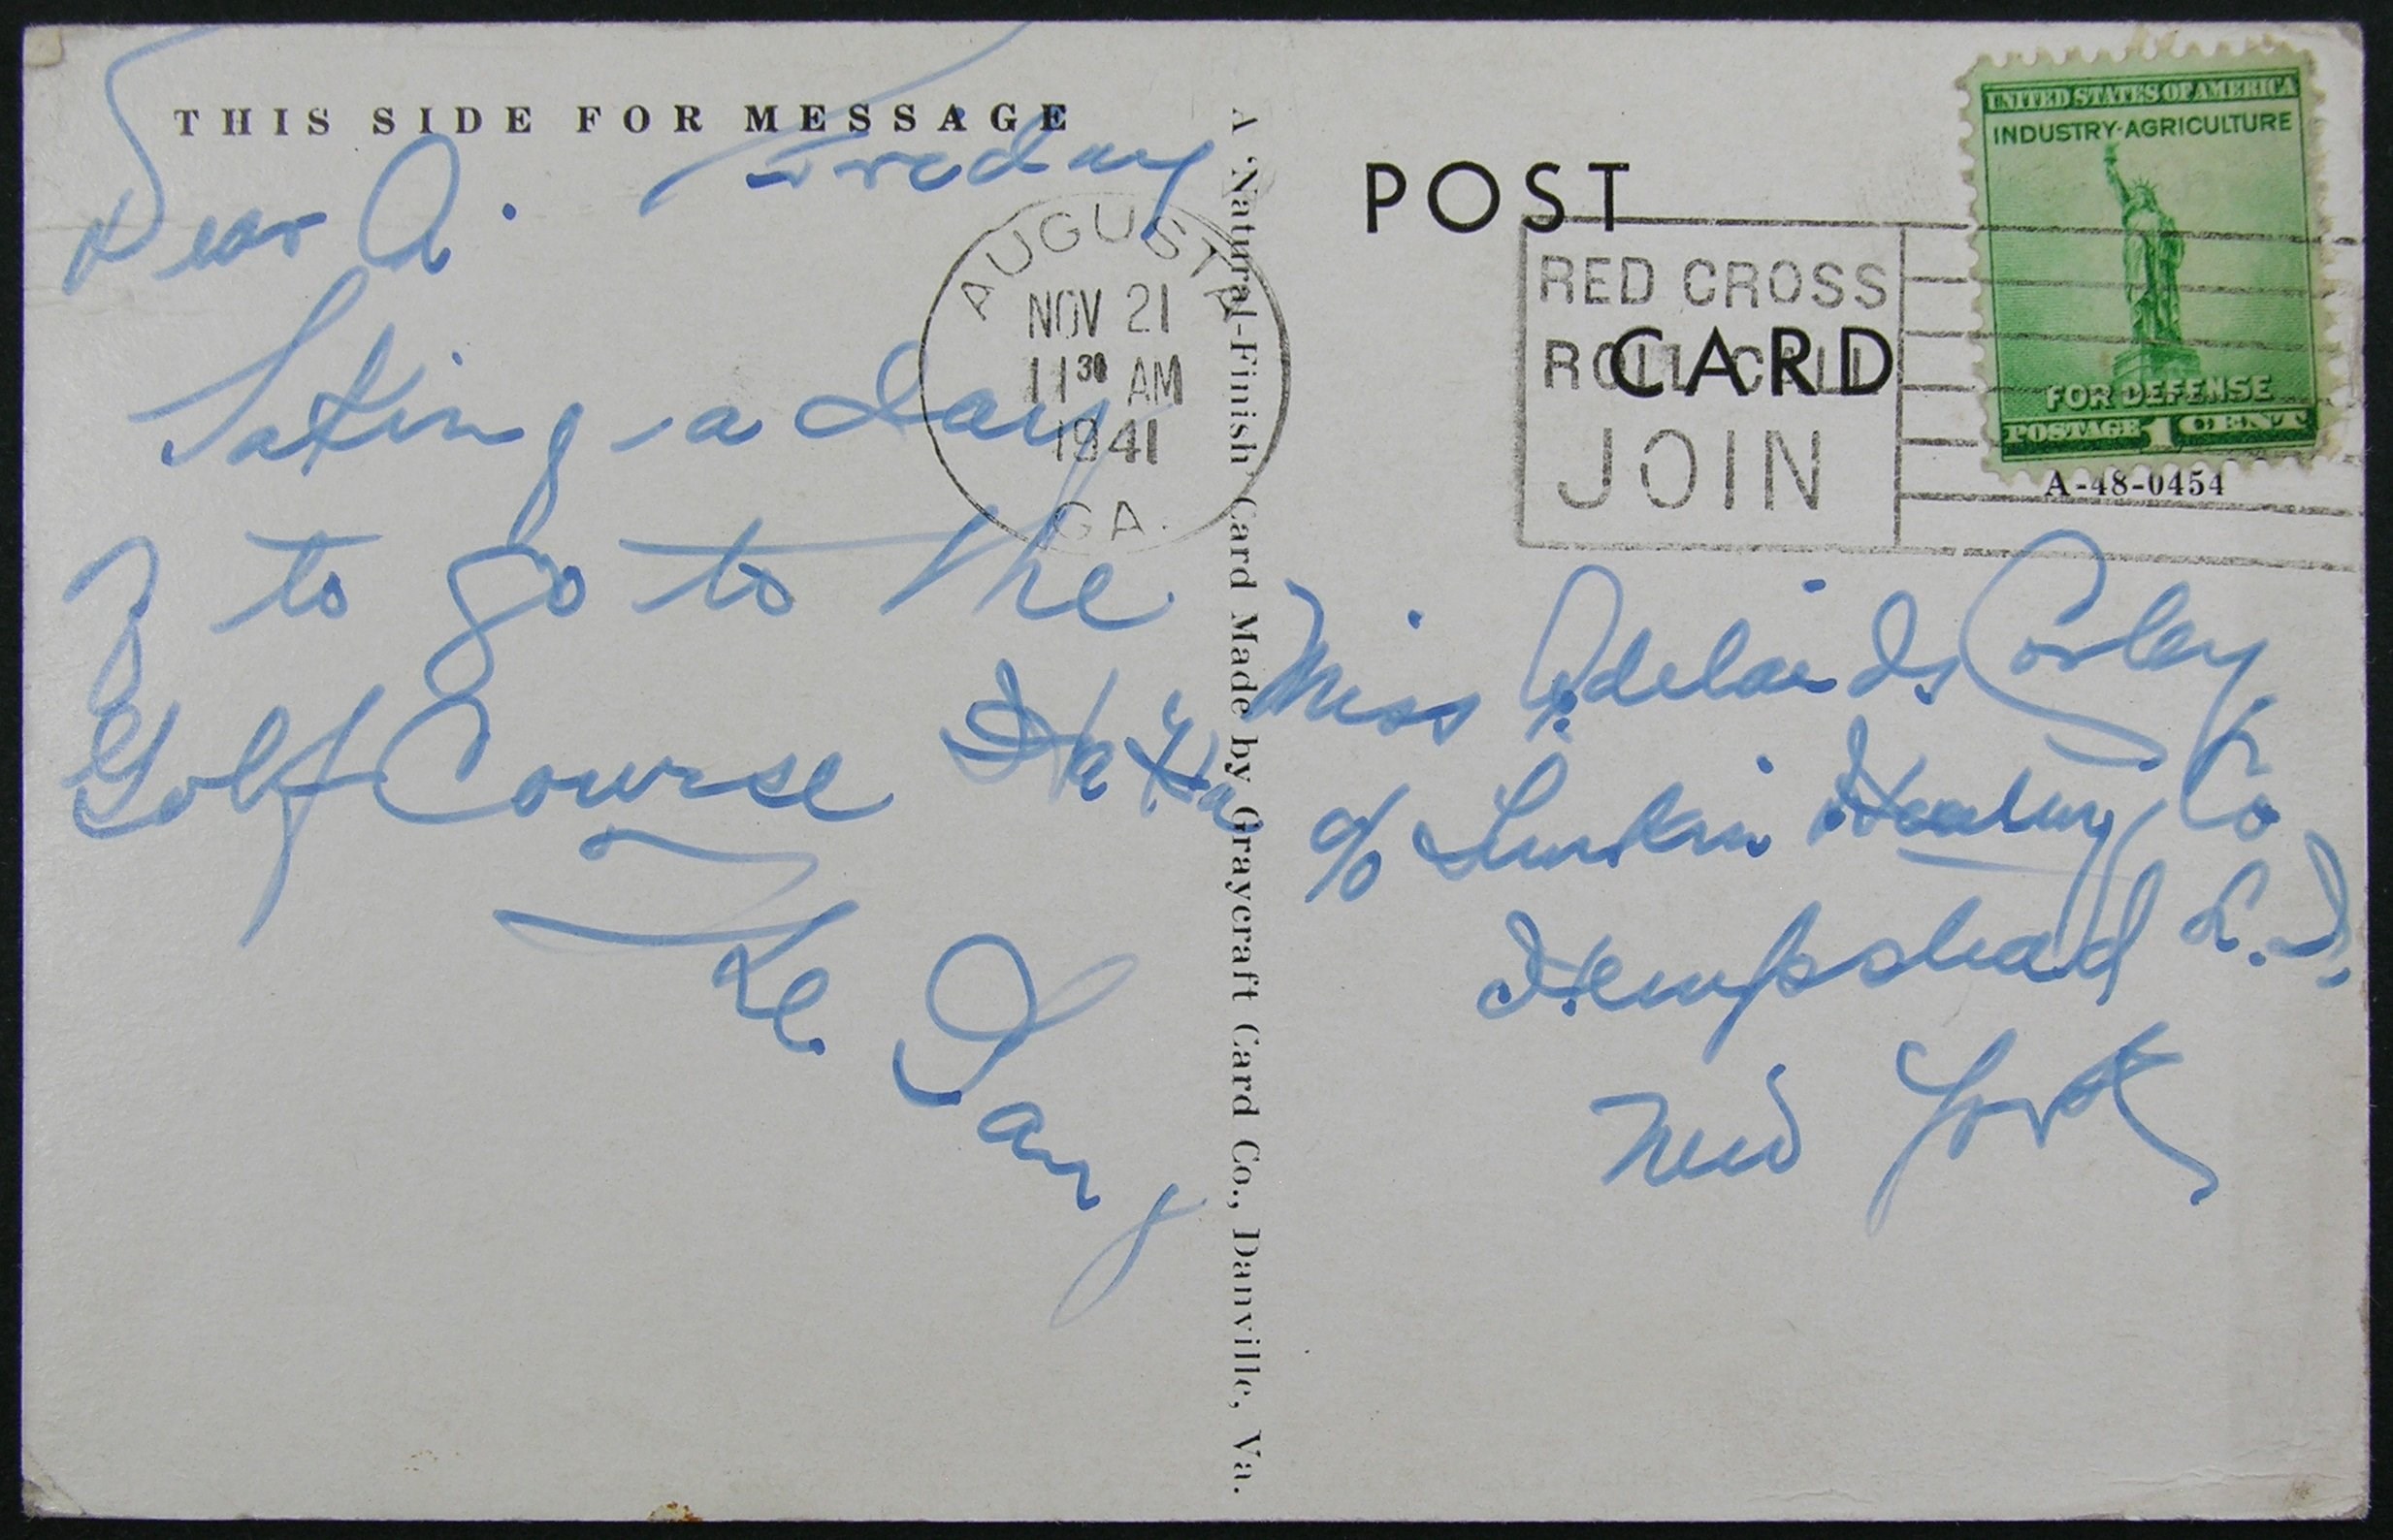 THIS SIDE FOR MESSAGE
Friday
Dear A.
Taking a day
to go to the
Golf Course Ha Ha
Gay
A 'Natural-Finish' Card Made by Graycraft Card Co., Danville, Va.
POST
CARD
AUGUSTA
NOV 21
11 30 AM
1941
GA.
RED CROSS
ROLL CALL
JOIN
UNITED STATES OF AMERICA
INDUSTRY-AGRICULTURE
FOR DEFENSE
POSTAGE 1 CENT
A-48-0454
Miss Adelaide Corley
c/o Co
Hempstead L.I.
New York